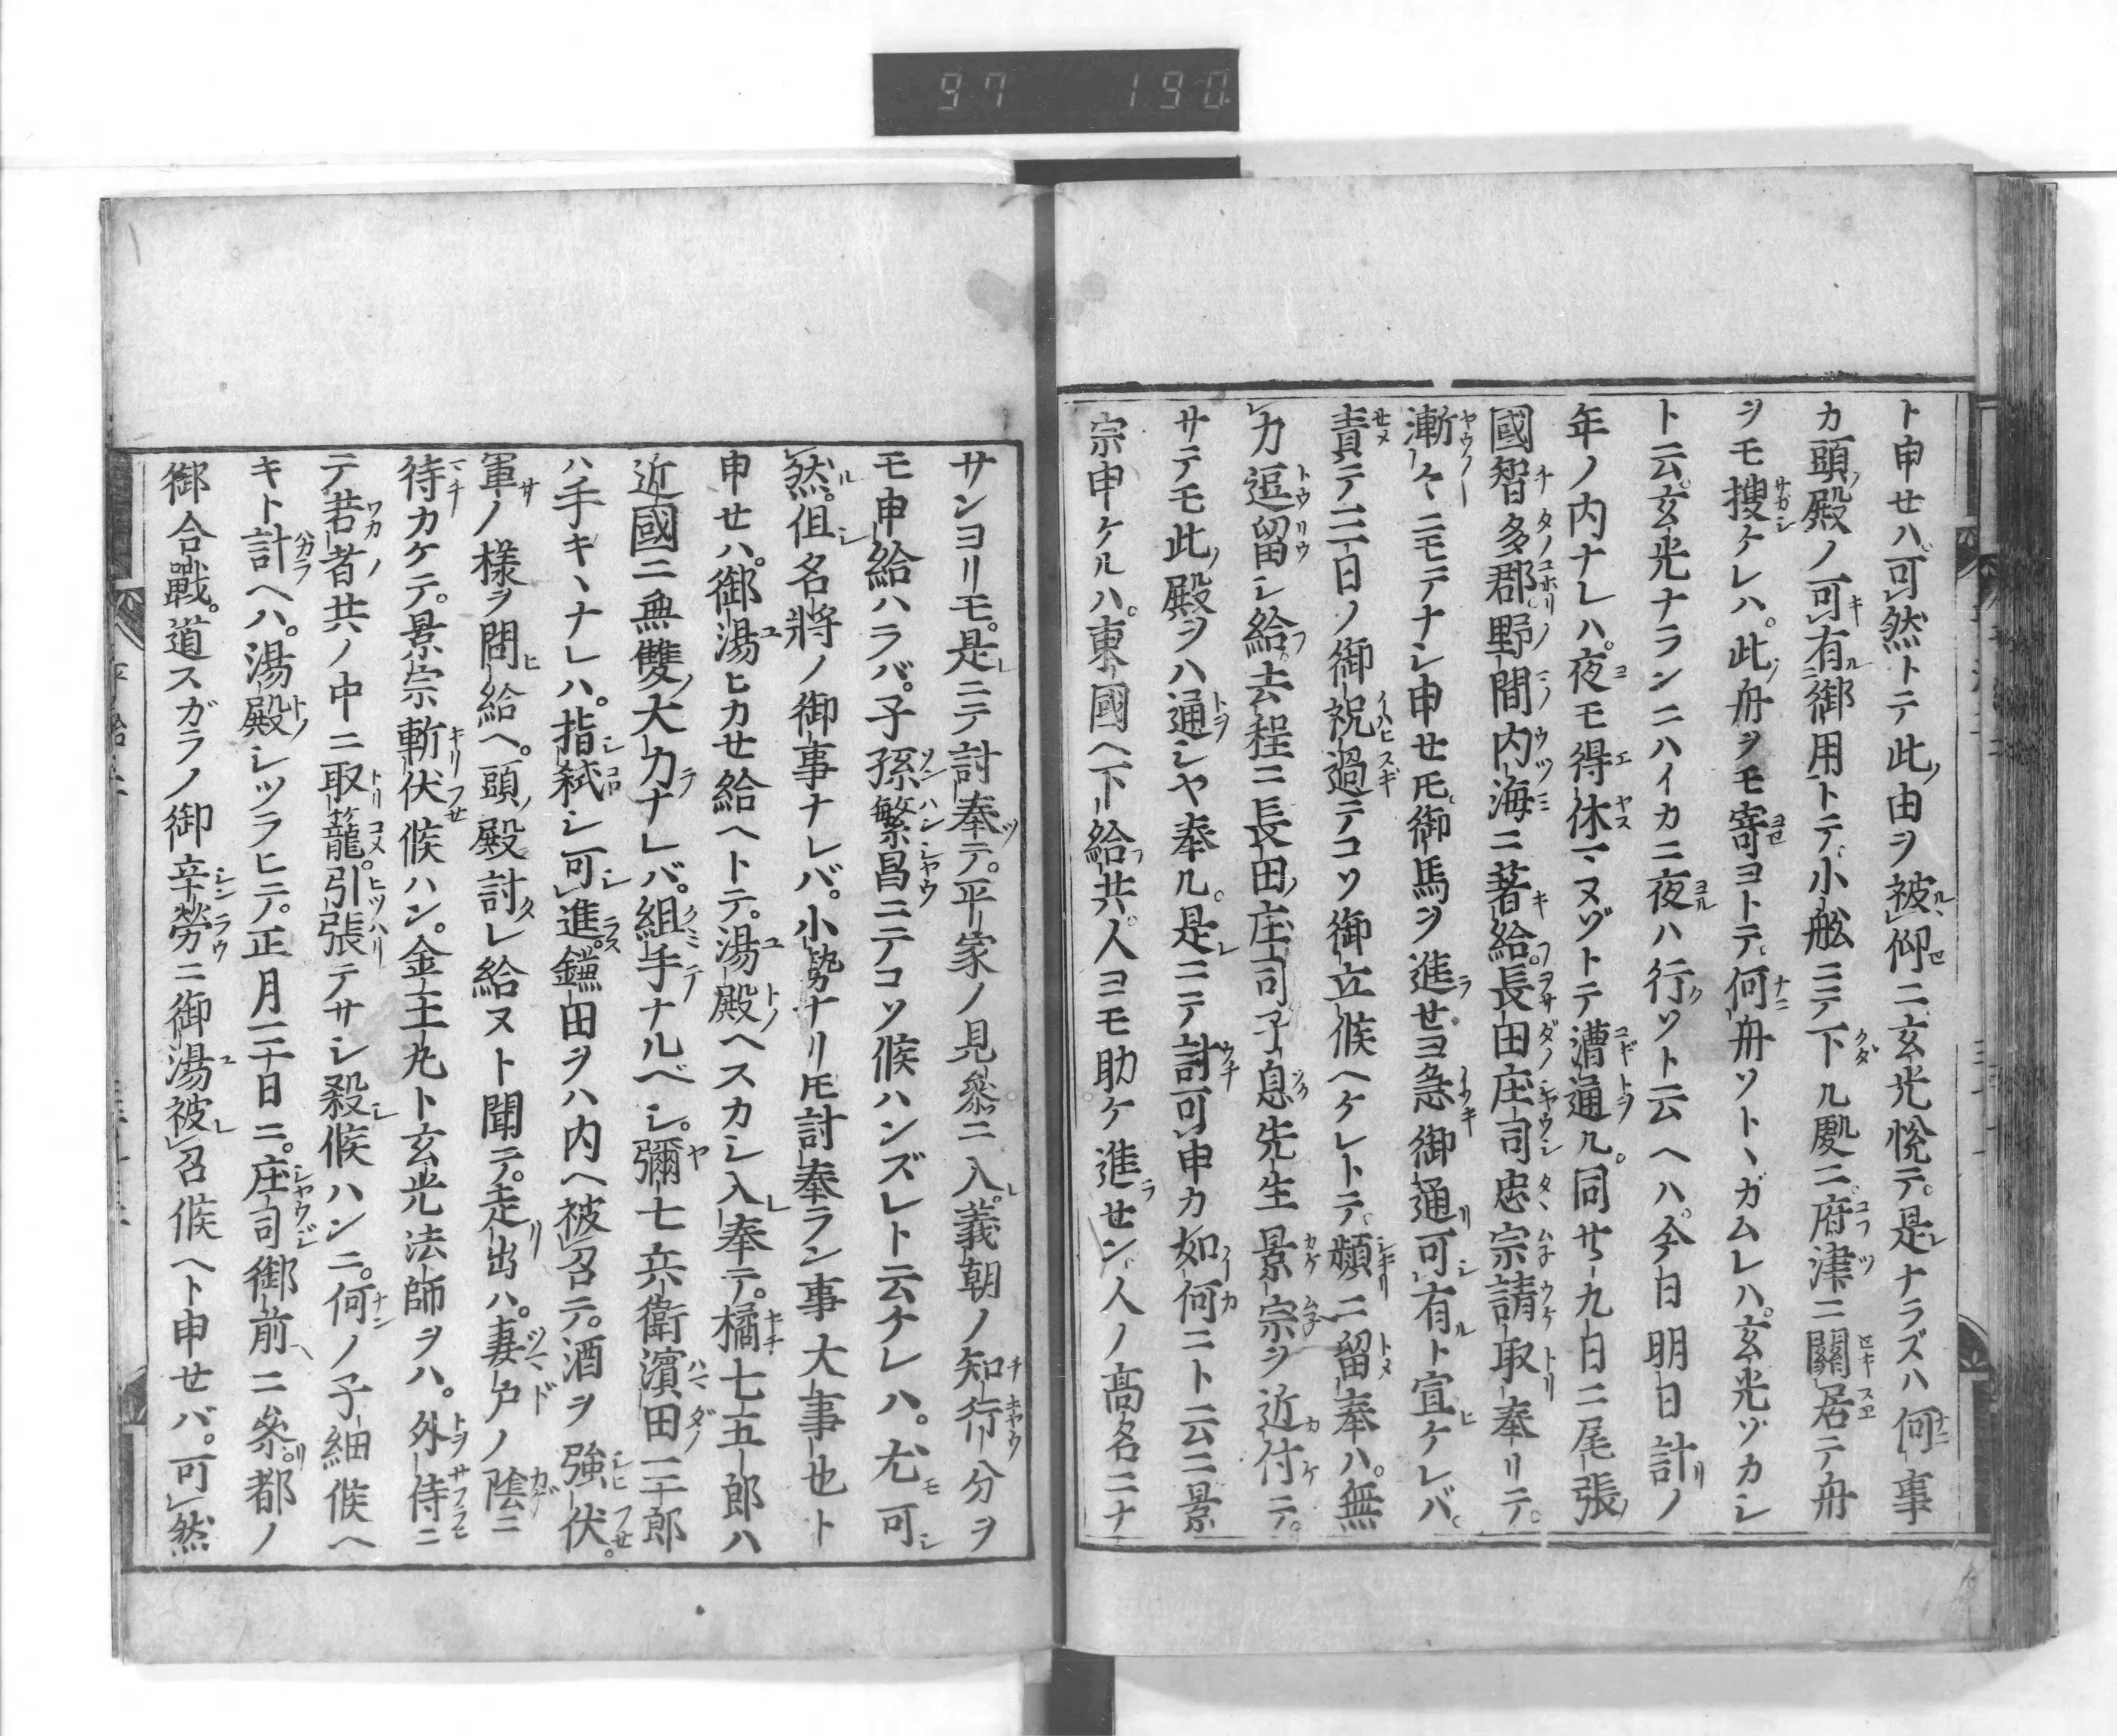 97 190
ト申せハ可然トテ此由ヲ被仰ニ玄光悦テ是ナラズハ何事
カ頭殿ノ可有御用トテ小舩ニテ下ル處ニ府津ニ關居テ舟
ヲモ搜ケレハ此舟ヲモ寄ヨトテ何舟ソトヽガムレハ玄光ヅカレ
ト云玄光ナランニハイカニ夜ハ行ソト云ヘハ今日明日計ノ
年ノ内ナレハ夜モ得休マヌゾトテ漕通ル同廿九日ニ尾張
國智多郡野間内海ニ著給長田庄司忠宗請取奉リテ
漸々ニモテナシ申せ𪜈御馬ヲ進せヨ急御通可有ト宣ケレバ
責テ三日ノ御祝過テコソ御立候ヘケレトテ頻ニ留奉ハ無
力逗留シ給去程ニ長田庄司子息先生景宗ヲ近付テ
サテモ此殿ヲハ通シヤ奉ル是ニテ討可申カ如何ニト云ニ景
宗申ケルハ東國ヘ下給共人ヨモ助ケ進せン人ノ高名ニナ
サンヨリモ是ニテ討奉テ平家ノ見參ニ入義朝ノ知行分ヲ
モ申給ハラバ子孫繁昌ニテコソ候ハンズレト云ケレハ尤可
然但名將ノ御事ナレバ小勢ナリ𪜈討奉ラン事大事也ト
申せハ御湯ヒカせ給ヘトテ湯殿ヘスカシ入奉テ橘七五郎ハ
近國ニ無雙大力ナレバ組手ナルベシ彌七兵衛濱田三郎
ハ手キヽナレハ指弑シ可進鎌田ヲハ内ヘ被召テ酒ヲ強伏
軍ノ樣ヲ問給ヘ頭殿討レ給ヌト聞テ走出ハ妻戸ノ陰ニ
待カケテ景宗斬伏候ハン金王丸ト玄光法師ヲハ外侍ニ
テ若者共ノ中ニ取籠引張テサシ殺候ハンニ何ノ子細候ヘ
キト計ヘハ湯殿シツラヒテ正月三日ニ庄司御前ニ參都ノ
御合戰道スガラノ御辛勞ニ御湯被召候ヘト申せバ可然